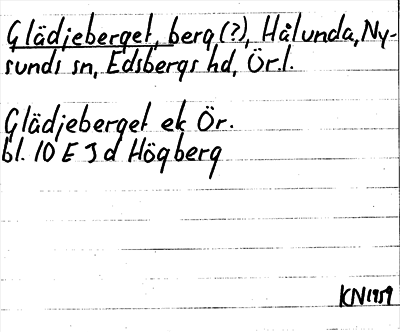 Glädjeberget, berg (?), Hålunda, Ny-
sunds sn, Edsbergs hd, Ör.l.
Glädjeberget ek Ör.
bl. 10 E J d Högberg
KN 1959